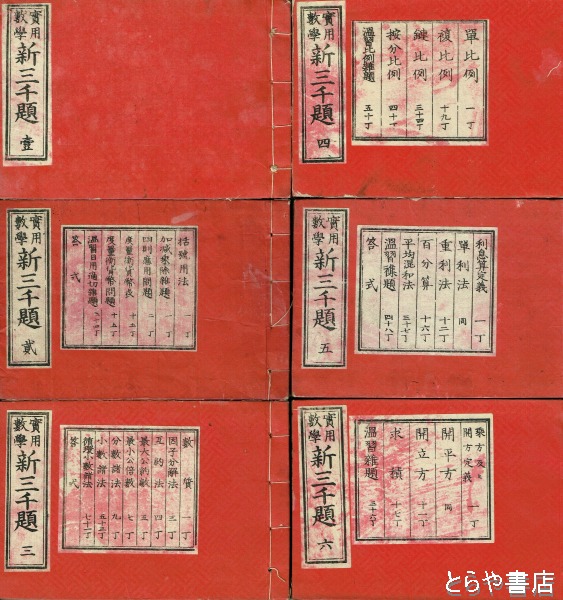 實用
數學
新三千題 壹
實用
數學
新三千題 貳
括號用法 一丁
加減乘除雜題 一丁
四則應用問題 二丁
度量衡貨幣表 十三丁
度量衡貨幣問題 十五丁
溫習日用適切雜題
答式
實用
數學
新三千題 三
數貭 一丁
因子分解法 三丁
互約法 四丁
最大公約數 三丁
最小公倍數 七丁
分數諸法 九丁
小數諸法 五十三丁
循環小數諸法 七十二丁
答式
實用
數學
新三千題 四
單比例 一丁
複比例 十九丁
鏈比例 三十四丁
按分比例 四十丁
溫習比例雜題 五十丁
實用
數學
新三千題 五
利息算定義 一丁
單利法 同
重利法 十二丁
百分算 十六丁
平均混和法 三十七丁
溫習雜題 四十八丁
答式
實用
數學
新三千題 六
乘方及
開方定義 一丁
開平方 同
開立方 十一丁
求積 十七丁
溫習雜題 三十六丁
とらや書店